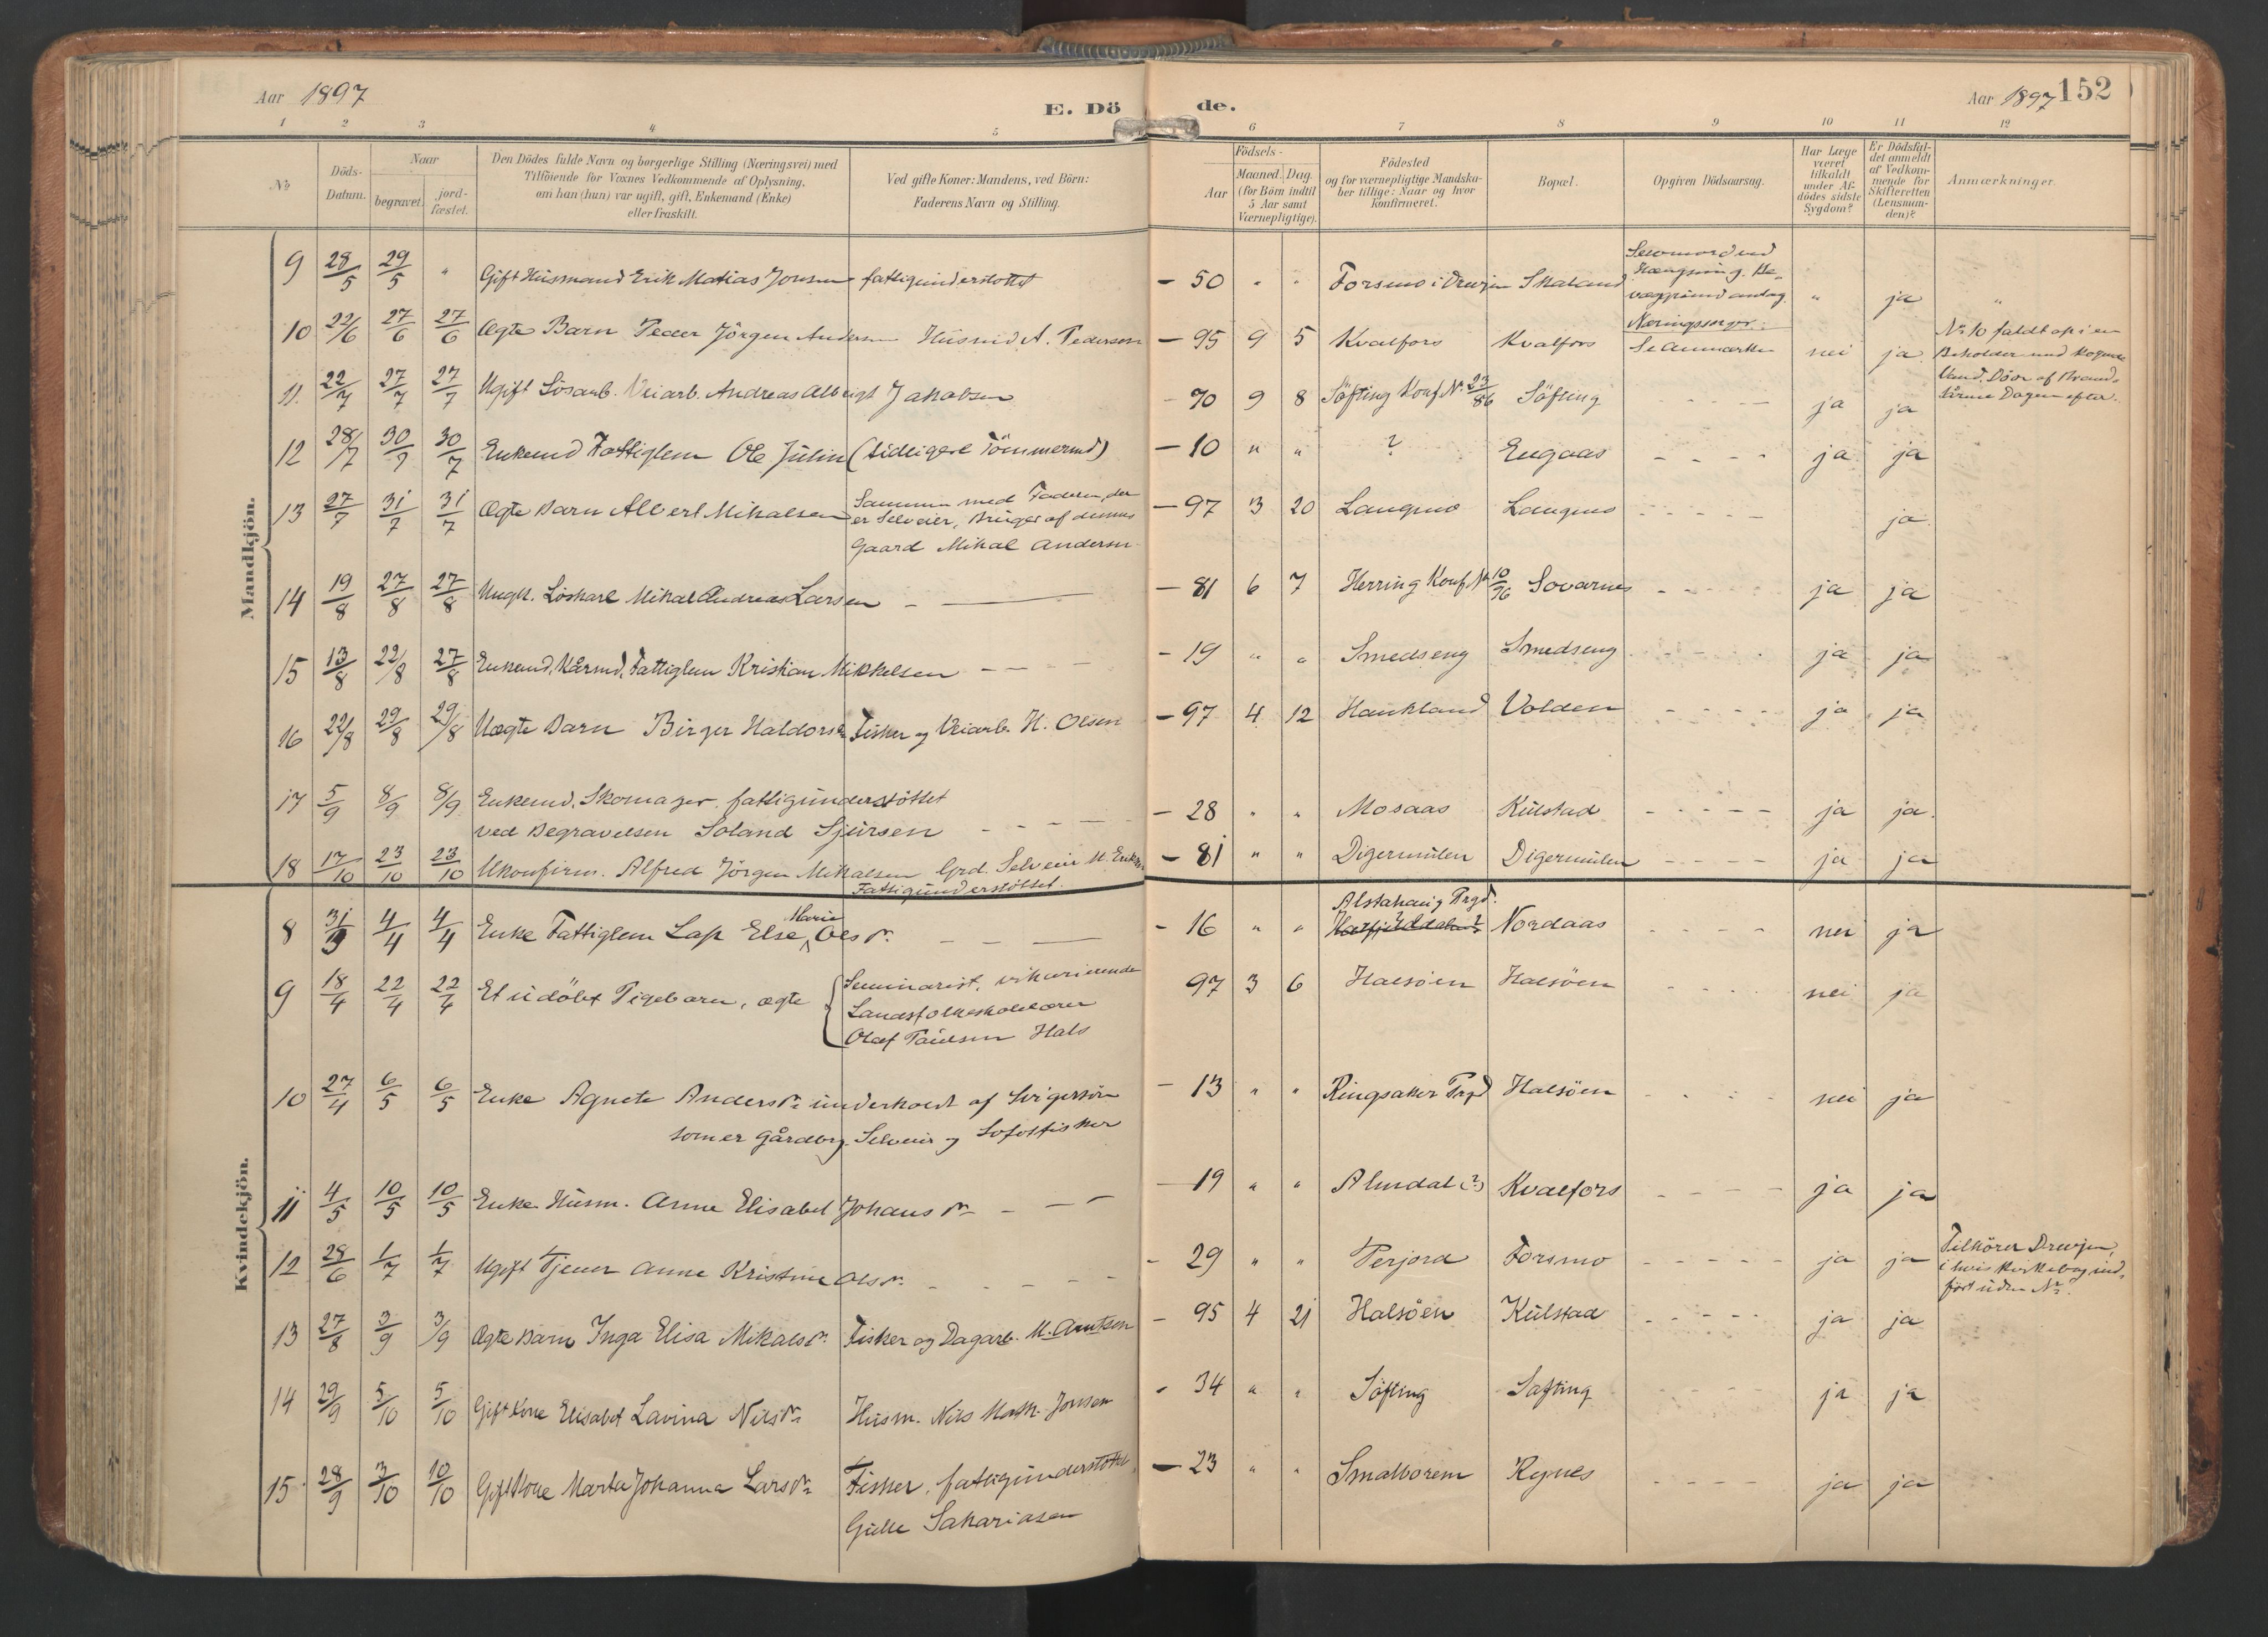 Aar 1897
E. Dö de.
Aar 1897 152
1 2 3 4 5 6 7 8 9 10 11 12
No
Döds-Datum.
Naar
begravet.
jord-fæstet.
Den Dödes fulde Navn og borgerlige Stilling (Næringsvei) med
Tilföiende for Voxnes Vedkommende af Oplysning,
om han (hun) var ugift, gift, Enkemand (Enke)
eller fraskilt.
Ved gifte Koner: Mandens, ved Börn:
Faderens Navn og Stilling.
Födsels-
Aar
Maaned. Dag.
(for Börn indtil
5 Aar samt
Værnepligtige).
Födested
og for værnepligtige Mandska-
ber tillige: Naar og hvor
konfirmeret.
Bopæl.
Opgiven Dödsaarsag.
Har Læge
været
tilkaldt
under Af-
dödes sidste
Sygdom?
Er Dödsfal-
det anmeldt
af Vedkom-
mende for
Skifteretten
(Lensman-
den)?
Anmærkninger.
Mandkjön.
9 28/5 29/5 " Gift Husmand Erik Matias Jonsen fattigunderstottet - 50 " " Forsmo i Drevjen Skaland Selvmord ved
Hængning. Be-
væggrund antag.
Næringssorger. " ja "
10 22/6 27/6 27/6 Ægte Barn Peder Jörgen Andersen Husmd A. Pedersen - 95 9 5 Kvalfors Kvalfors Se Anmærkn nei ja No 10 faldt op i en
Beholder med kogende
Vand. Döde af Brand-
sårene Dagen efter.
11. 22/7 27/7 27/7 Ugift Lösarb. Veiarb. Andreas Albrigt Jakobsen - 70 9 8 Söfting Konf. No 23/86 Söfting - - - - ja ja
12 28/7 30/7 30/7 Enkemd Fattiglem Ole Julin (tidligere Tömmermd) - 10 " " ? Engaas - - - - ja ja
13 27/7 31/7 31/7 Ægte Barn Albert Mikalsen Sammen med Faderen, der
er Selveier, Bruger af dennes
Gaard Mikal Andersen - 97 3 20 Langmo Langmo - - - - - ja
14 19/8 27/8 27/8 Ungk. Löskarl Mikal Andreas Larsen - 81 6 7 Herring Konf. No 10/96 Sovarnes - - - - ja ja
15 13/8 22/8 27/8 Enkemd, Kårmd, Fattiglem Kristian Mikkelsen - - - - - 19 " " Smedseng Smedseng - - - - ja ja
16 22/8 29/8 29/8 Uægte Barn Birger Haldorsen Fisker og Veiarb. H. Olsen - 97 4 12 Haukland Volden - - - - ja ja
17 5/9 8/9 8/9 Enkemd. Skomager. fattigunderstöttet
ved Begravelsen Soland Sjursen - - - - - 28 " " Mosaas Kulstad - - - - - ja ja
18 17/10 23/10 23/10 Ukonfirm. Alfred Jörgen Mikalsen Grd. Selveier M. Eriksen
Fattigunderstöttet. - 81 " " Digermulen Digermulen - - - - ja ja
Kvindekjön.
8 31/3 4/4 4/4 Enke Fattiglem Lap Else Marie Olsdr. - 16 " " Alstahaug Prgd.
Hatfjelddalen? Nordaas - - - - nei ja
9 18/4 22/4 22/4 Et udöbt Pigebarn, ægte Seminarist, vikarierende
Landsfolkeskolelærer
Olaf Paulsen Hals 97 3 6 Halsöen Halsöen - - - - nei ja
10 27/4 6/5 6/5 Enke Agnete Andersdr. underholdt af Svigersön
som er Gårdbrg. Selveier og Lofotfisker - 13 " " Ringsaker Prgd Halsöen - - - - nei ja
11 4/5 10/5 10/5 Enke Husm. Anne Elisabet Johansdr. - - - 19 " " Almdal (?) Kvalfors - - - - ja ja
12 28/6 1/7 1/7 Ugift Tjener Anne Kristine Olsdr. - - - - - 29 " " Perjord Forsmo - - - - - ja ja Tilhörer Drevjen,
i hvis Kirkebog ind-
fört uden No.
13 27/8 3/9 3/9 Ægte Barn Inga Elisa Mikalsdr. Fisker og Dagarb. M. Arntsen - 95 4 21 Halsöen Kulstad - - - - - ja ja
14 29/9 5/10 5/10 Gift Kone Elisabet Lavina Nilsdr. Husm. Nils Math. Jonsen - 34 " " Söfting Söfting - - - - ja ja
15 28/9 3/10 10/10 Gift Kone Marta Johanna Larsdr. Fisker, fattigunderstöttet,
Gulle Sakariasen - 23 " " Smalborem Rynes - - - - ja ja